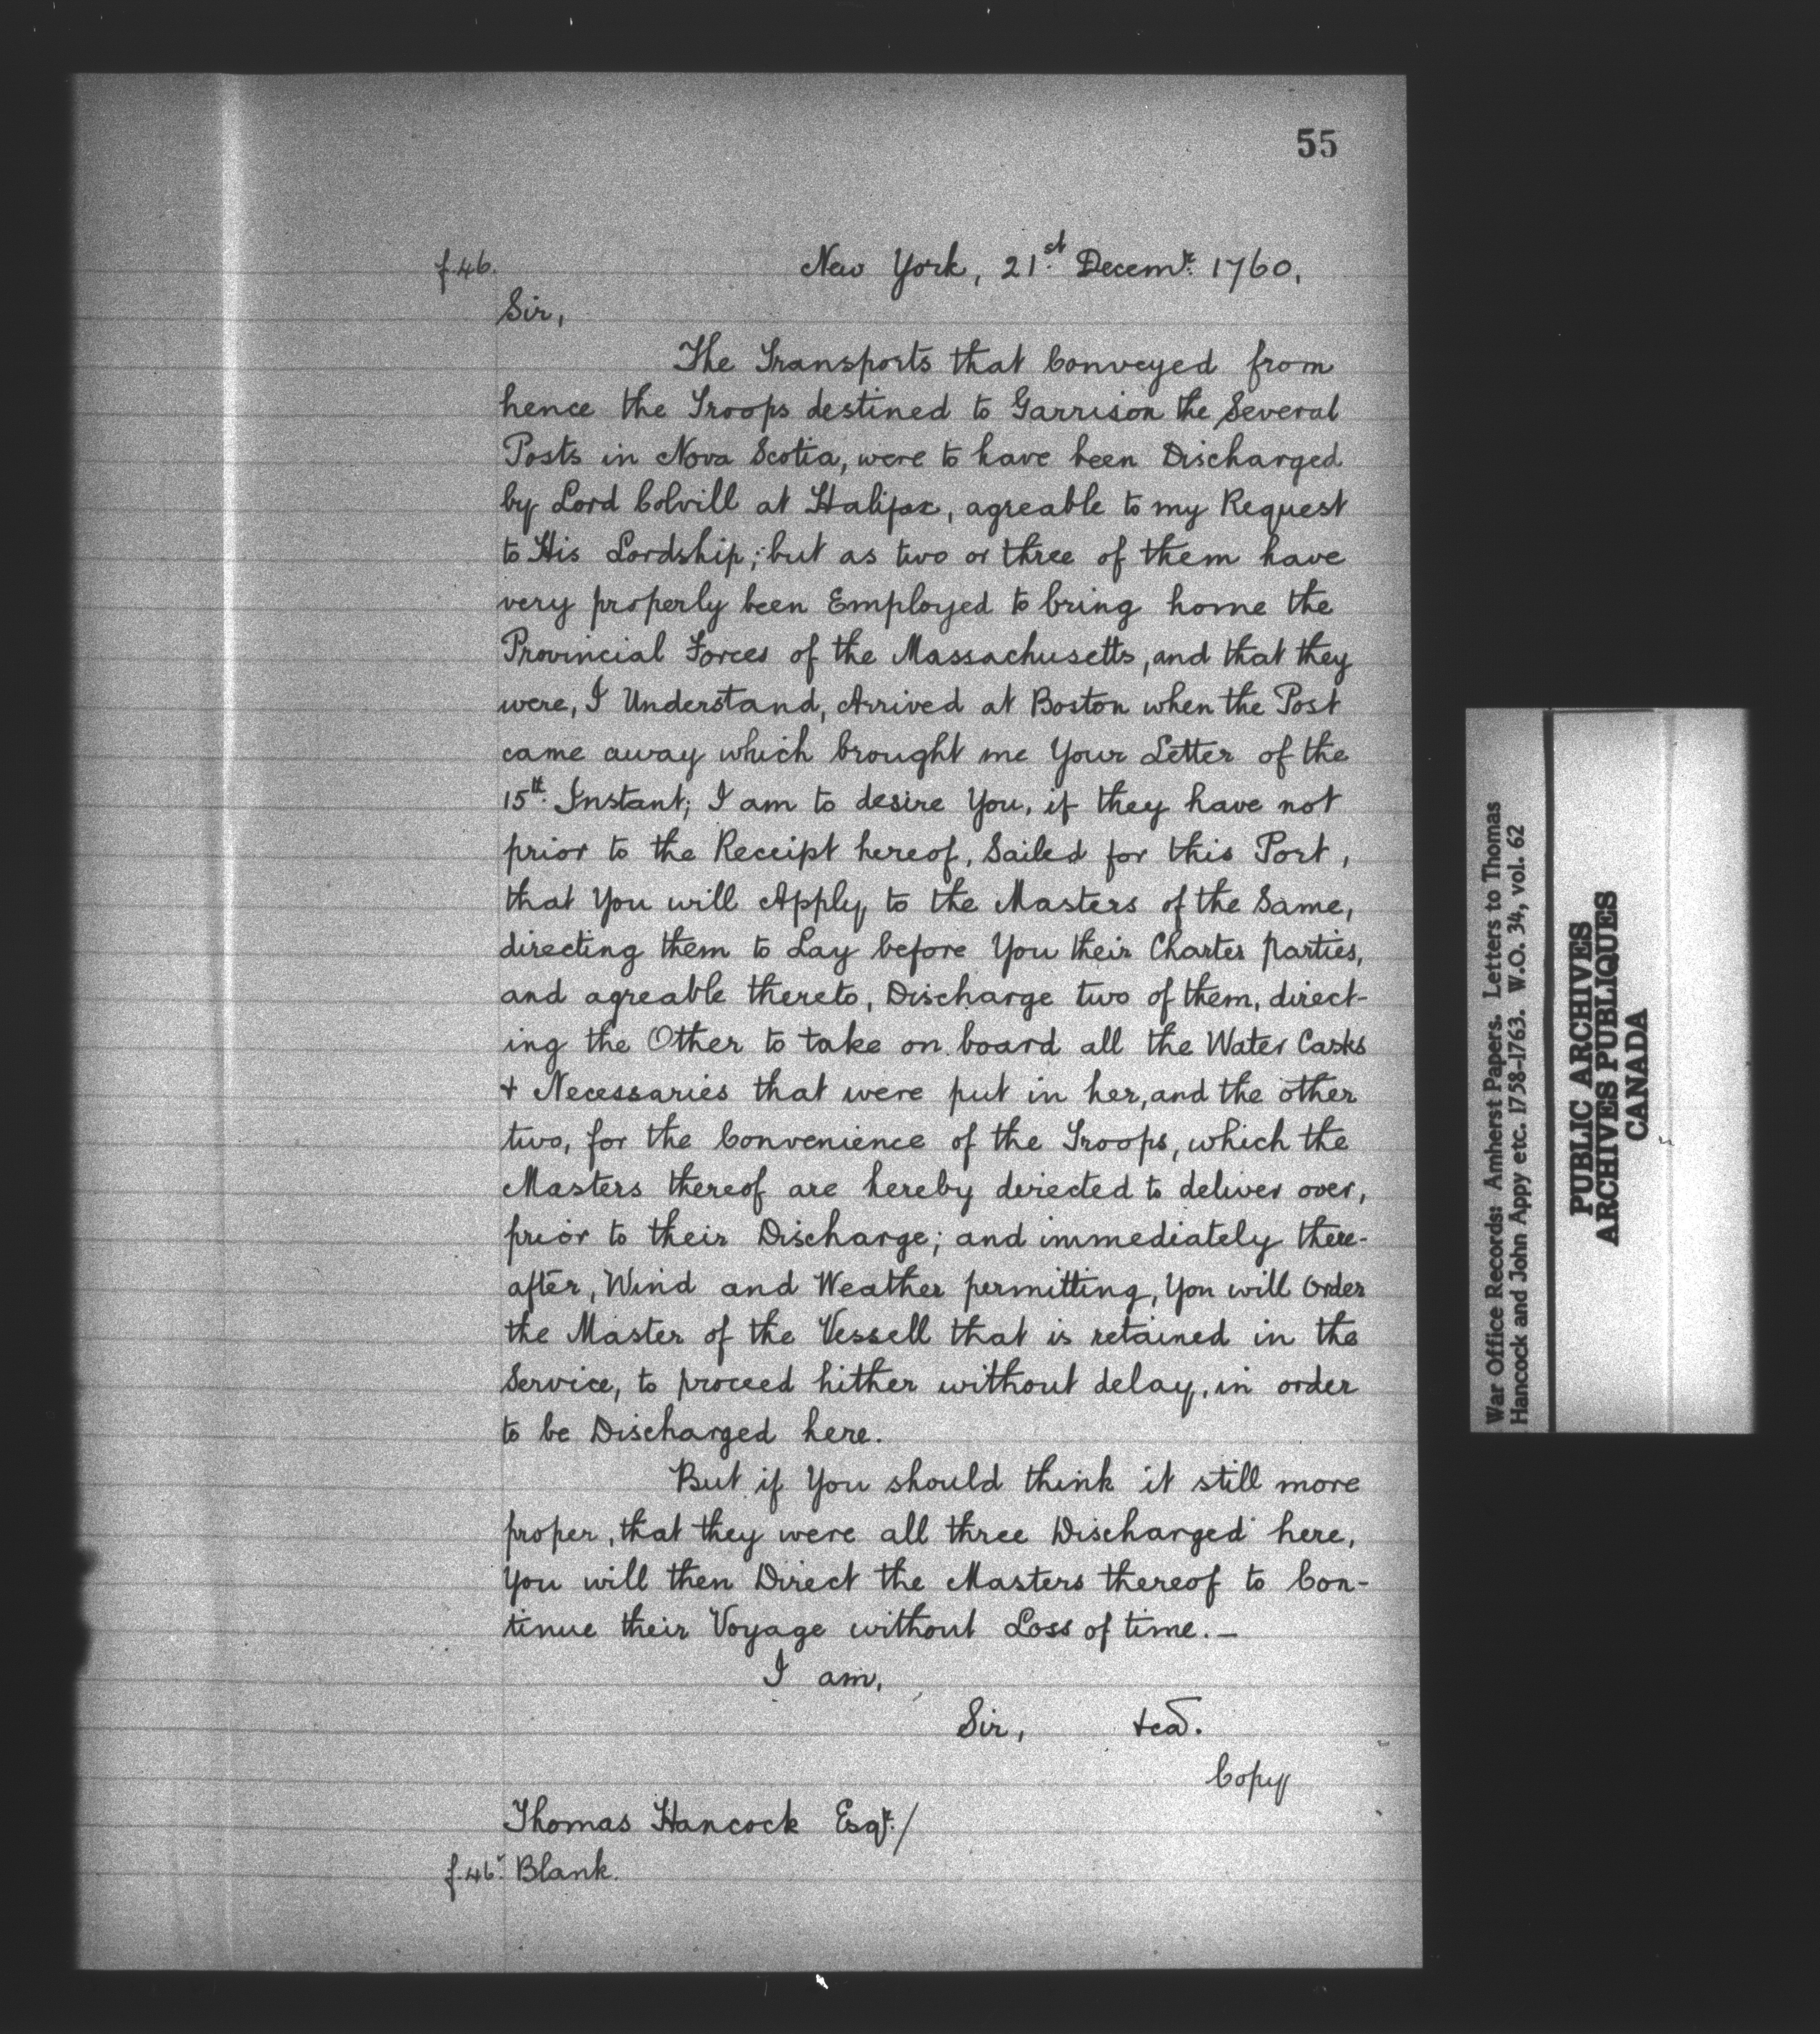 55
f.46.
New York, 21st Decemr. 1760.
Sir,
The Transports that Conveyed from
hence the Troops destined to Garrison the Several
Posts in Nova Scotia, were to have been Discharged
by Lord Colvill at Halifax, agreable to my Request
to His Lordship; but as two or three of them have
very properly been Employed to bring home the
Provincial Forces of the Massachusetts, and that they
were, I Understand, Arrived at Boston when the Post
came away which brought me Your Letter of the
15th. Instant; I am to desire You, if they have not
prior to the Receipt hereof, Sailed for this Port,
that You will Apply to the Masters of the Same,
directing them to Lay before You their Charter parties,
and agreable thereto, Discharge two of them, direct-
ing the Other to take on board all the Water Casks
& Necessaries that were put in her, and the other
two, for the Convenience of the Troops, which the
Masters thereof are hereby directed to deliver over,
prior to their Discharge; and immediately there-
after, Wind and Weather permitting, You will Order
the Master of the Vessell that is retained in the
Service, to proceed hither without delay, in order
to be Discharged here.
But if You should think it still more
proper, that they were all three Discharged here,
You will then Direct the Masters thereof to Con-
tinue their Voyage without Loss of time. —
I am,
Sir, &ca.
Copy
Thomas Hancock Esqr. /
f.46v. Blank.
War Office Records: Amherst Papers. Letters to Thomas
Hancock and John Appy etc. 1758-1763. W.O. 34, vol. 62
PUBLIC ARCHIVES
ARCHIVES PUBLIQUES
CANADA